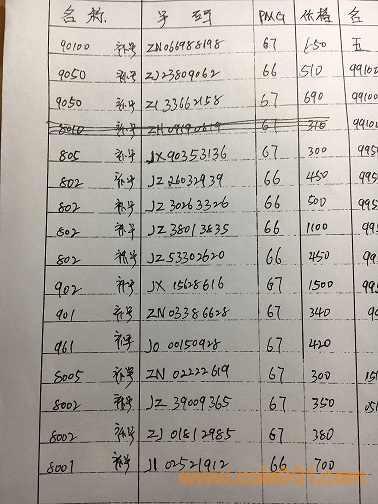 名称 号码 PMG 价格 名
90100 补号 ZN066988198 67 650 五
9050 补号 ZJ23809062 66 510 99100
9050 补号 ZJ33662158 67 690 99100
8010 补号 67 310 99100
805 补号 JX90353136 67 300 995
802 补号 JZ26032939 66 450 995
802 补号 JZ30263326 66 500 995
802 补号 JZ38013835 66 1100 995
802 补号 JZ53302620 66 450 995
902 补号 JX15628616 67 1500 995
901 补号 ZN03386628 67 340 90
961 补号 J0 00150928 67 420
8005 补号 ZN 02222619 67 300
8002 补号 JZ 39009365 67 350
8002 补号 ZJ 01812985 67 380
8001 补号 JI 02521912 66 700
www.coin001.com